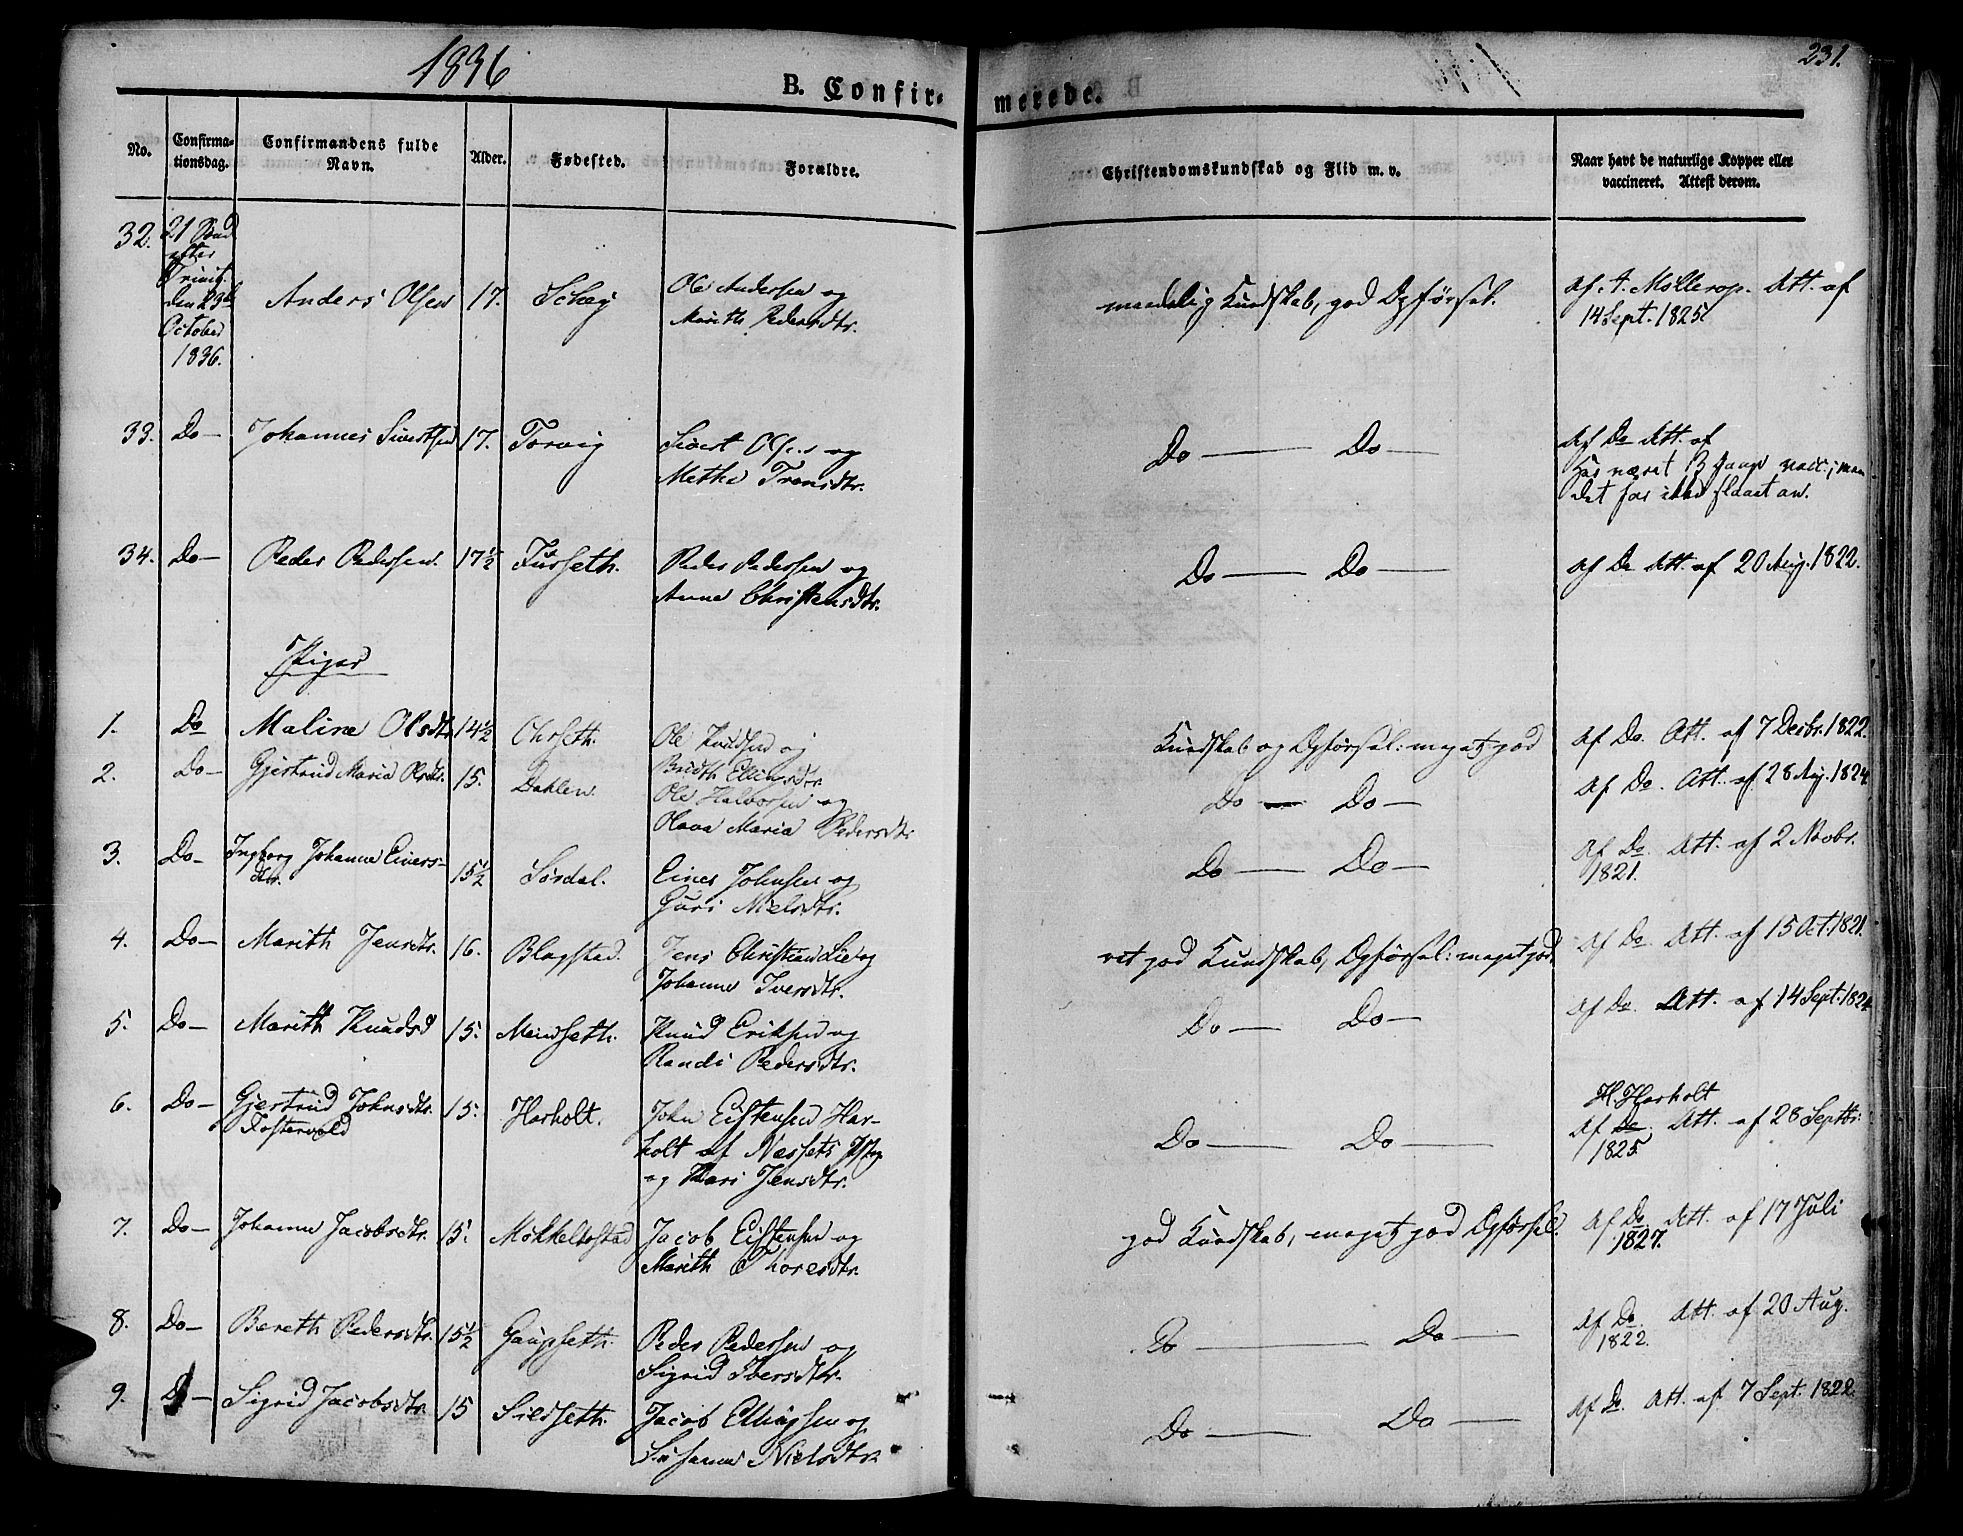 1836
231.
B. Confir-
merede.
No.
Confirma-
tionsdag.
Confirmandens fulde
Navn.
Alder.
Fødested.
Forældre.
Christendomskundskab og Flid m. v.
Naar havt de naturlige Kopper eller
vaccineret. Attest derom.
32.
21 Sønd
efter
Trinit.
den 23de
October
1836.
Anders Olsen
17.
Ole Andersen og
Marith Pedersdtr.
maadelig Kundskab, god Opførsel.
Af A. Møllerop. Att. af
14 Sept. 1825
33.
Do
Johannes Sivertsen
17.
Torvig
Sivert Olsen og
Methe Tronsdtr.
Do Do
Af Do Att. af
har været 13 Gange vacc.; men
det har ikke slaaet an.
34.
Do
Peder Pedersen.
17½
Furseth.
Peder Pedersen og
Anne Christensdtr.
Do Do
Af Do Att. af 20 Aug. 1822.
Piger
1.
Do
Maline Olsdtr.
14½
Ohrseth.
Ole Knudsen og
Brith Ellingsdtr.
Kundskab og Opførsel: meget god
Af Do. Att. af 7 Decbr. 1822.
2.
Do
Gjertrud Maria Olsdtr.
15.
Dahlen.
Ole Halvorsen og
Olava Maria Pedersdtr.
Do Do
Af Do. Att. af 28 Aug. 1824.
3.
Do
Ingborg Johanne Einers-
dtr.
15½
Sørdal.
Einer Johnsen og
Guri Nielsdtr.
Do Do
Af Do. Att. af 2 Novbr.
1821.
4.
Do
Marith Jensdtr.
16.
Blagstad.
Jens Christian Lie og
Johanne Iversdtr.
ret god Kundskab, Opførsel: meget god.
Af Do Att. af 15 Oct. 1821.
5.
Do
Marith Knudsd
15.
Meisseth.
Knud Eriksen og
Randi Pedersdtr.
Do Do
Af Do. Att. af 14 Sept. 1824
6.
Do
Gjertrud Johnsdtr.
Fostervold
15.
Harholt.
John Eistensen Har-
holt af Nessets Pstgj.
og Kari Jensdtr.
Do Do
H. Harholt
Af Do Att. af 28 Septbr.
1825.
7.
Do
Johanne Jacobsdtr.
15.
Mokkelbostad
Jacob Eistensen og
Marith Thoresdtr.
god Kundskab, meget god Opførsel.
Af Do Att. af 17 Juli
1827.
8.
Do
Bereth Pedersdtr.
15½
Gaupseth.
Peder Pedersen og
Sigrid Iversdtr.
Do Do
Af Do. Att. af 20 Aug.
1822.
9.
Do
Sigrid Jacobsdtr.
15
Sildseth.
Jacob Ellingsen og
Susanne Nielsdtr.
Do Do
Af Do. Att. af 7 Sept. 1822.